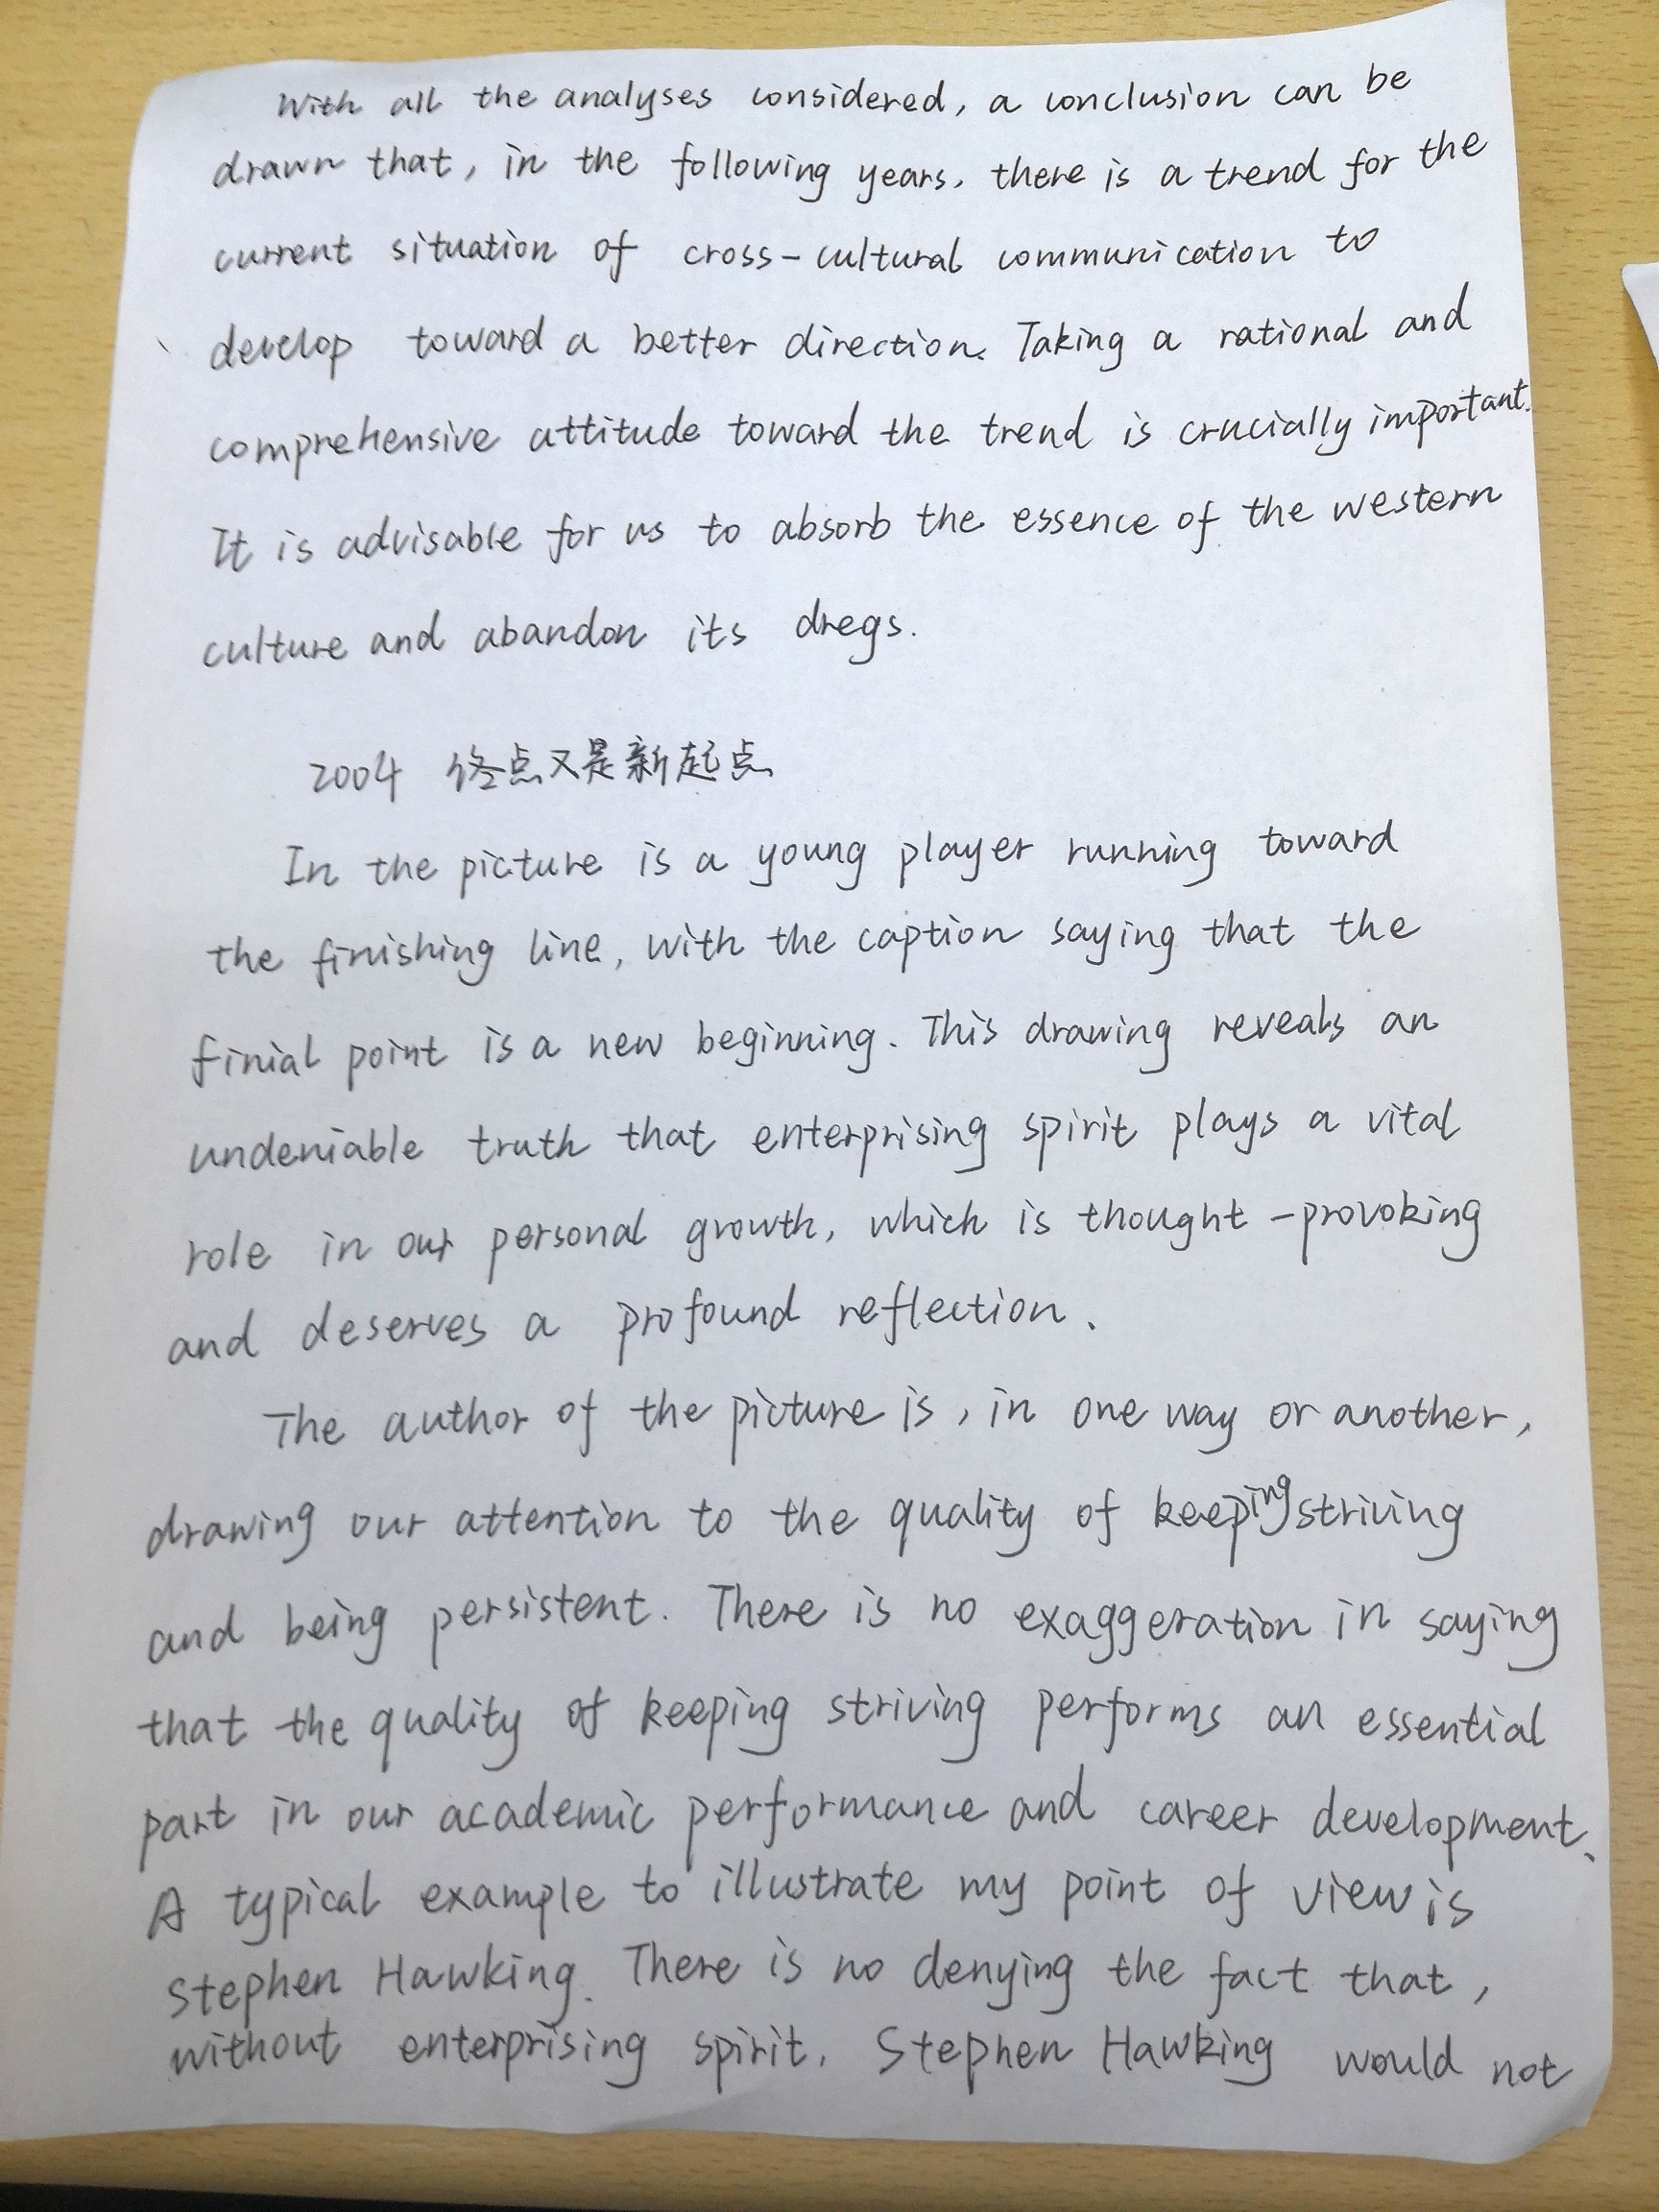 With all the analyses considered, a conclusion can be
drawn that, in the following years, there is a trend for the
current situation of cross-cultural communication to
develop toward a better direction. Taking a rational and
comprehensive attitude toward the trend is crucially important.
It is advisable for us to absorb the essence of the western
culture and abandon its dregs.
2004 终点又是新起点
In the picture is a young player running toward
the finishing line, with the caption saying that the
finial point is a new beginning. This drawing reveals an
undeniable truth that enterprising spirit plays a vital
role in our personal growth, which is thought-provoking
and deserves a profound reflection.
The author of the picture is, in one way or another,
drawing our attention to the quality of keeping striving
and being persistent. There is no exaggeration in saying
that the quality of keeping striving performs an essential
part in our academic performance and career development.
A typical example to illustrate my point of view is
Stephen Hawking. There is no denying the fact that,
without enterprising spirit, Stephen Hawking would not